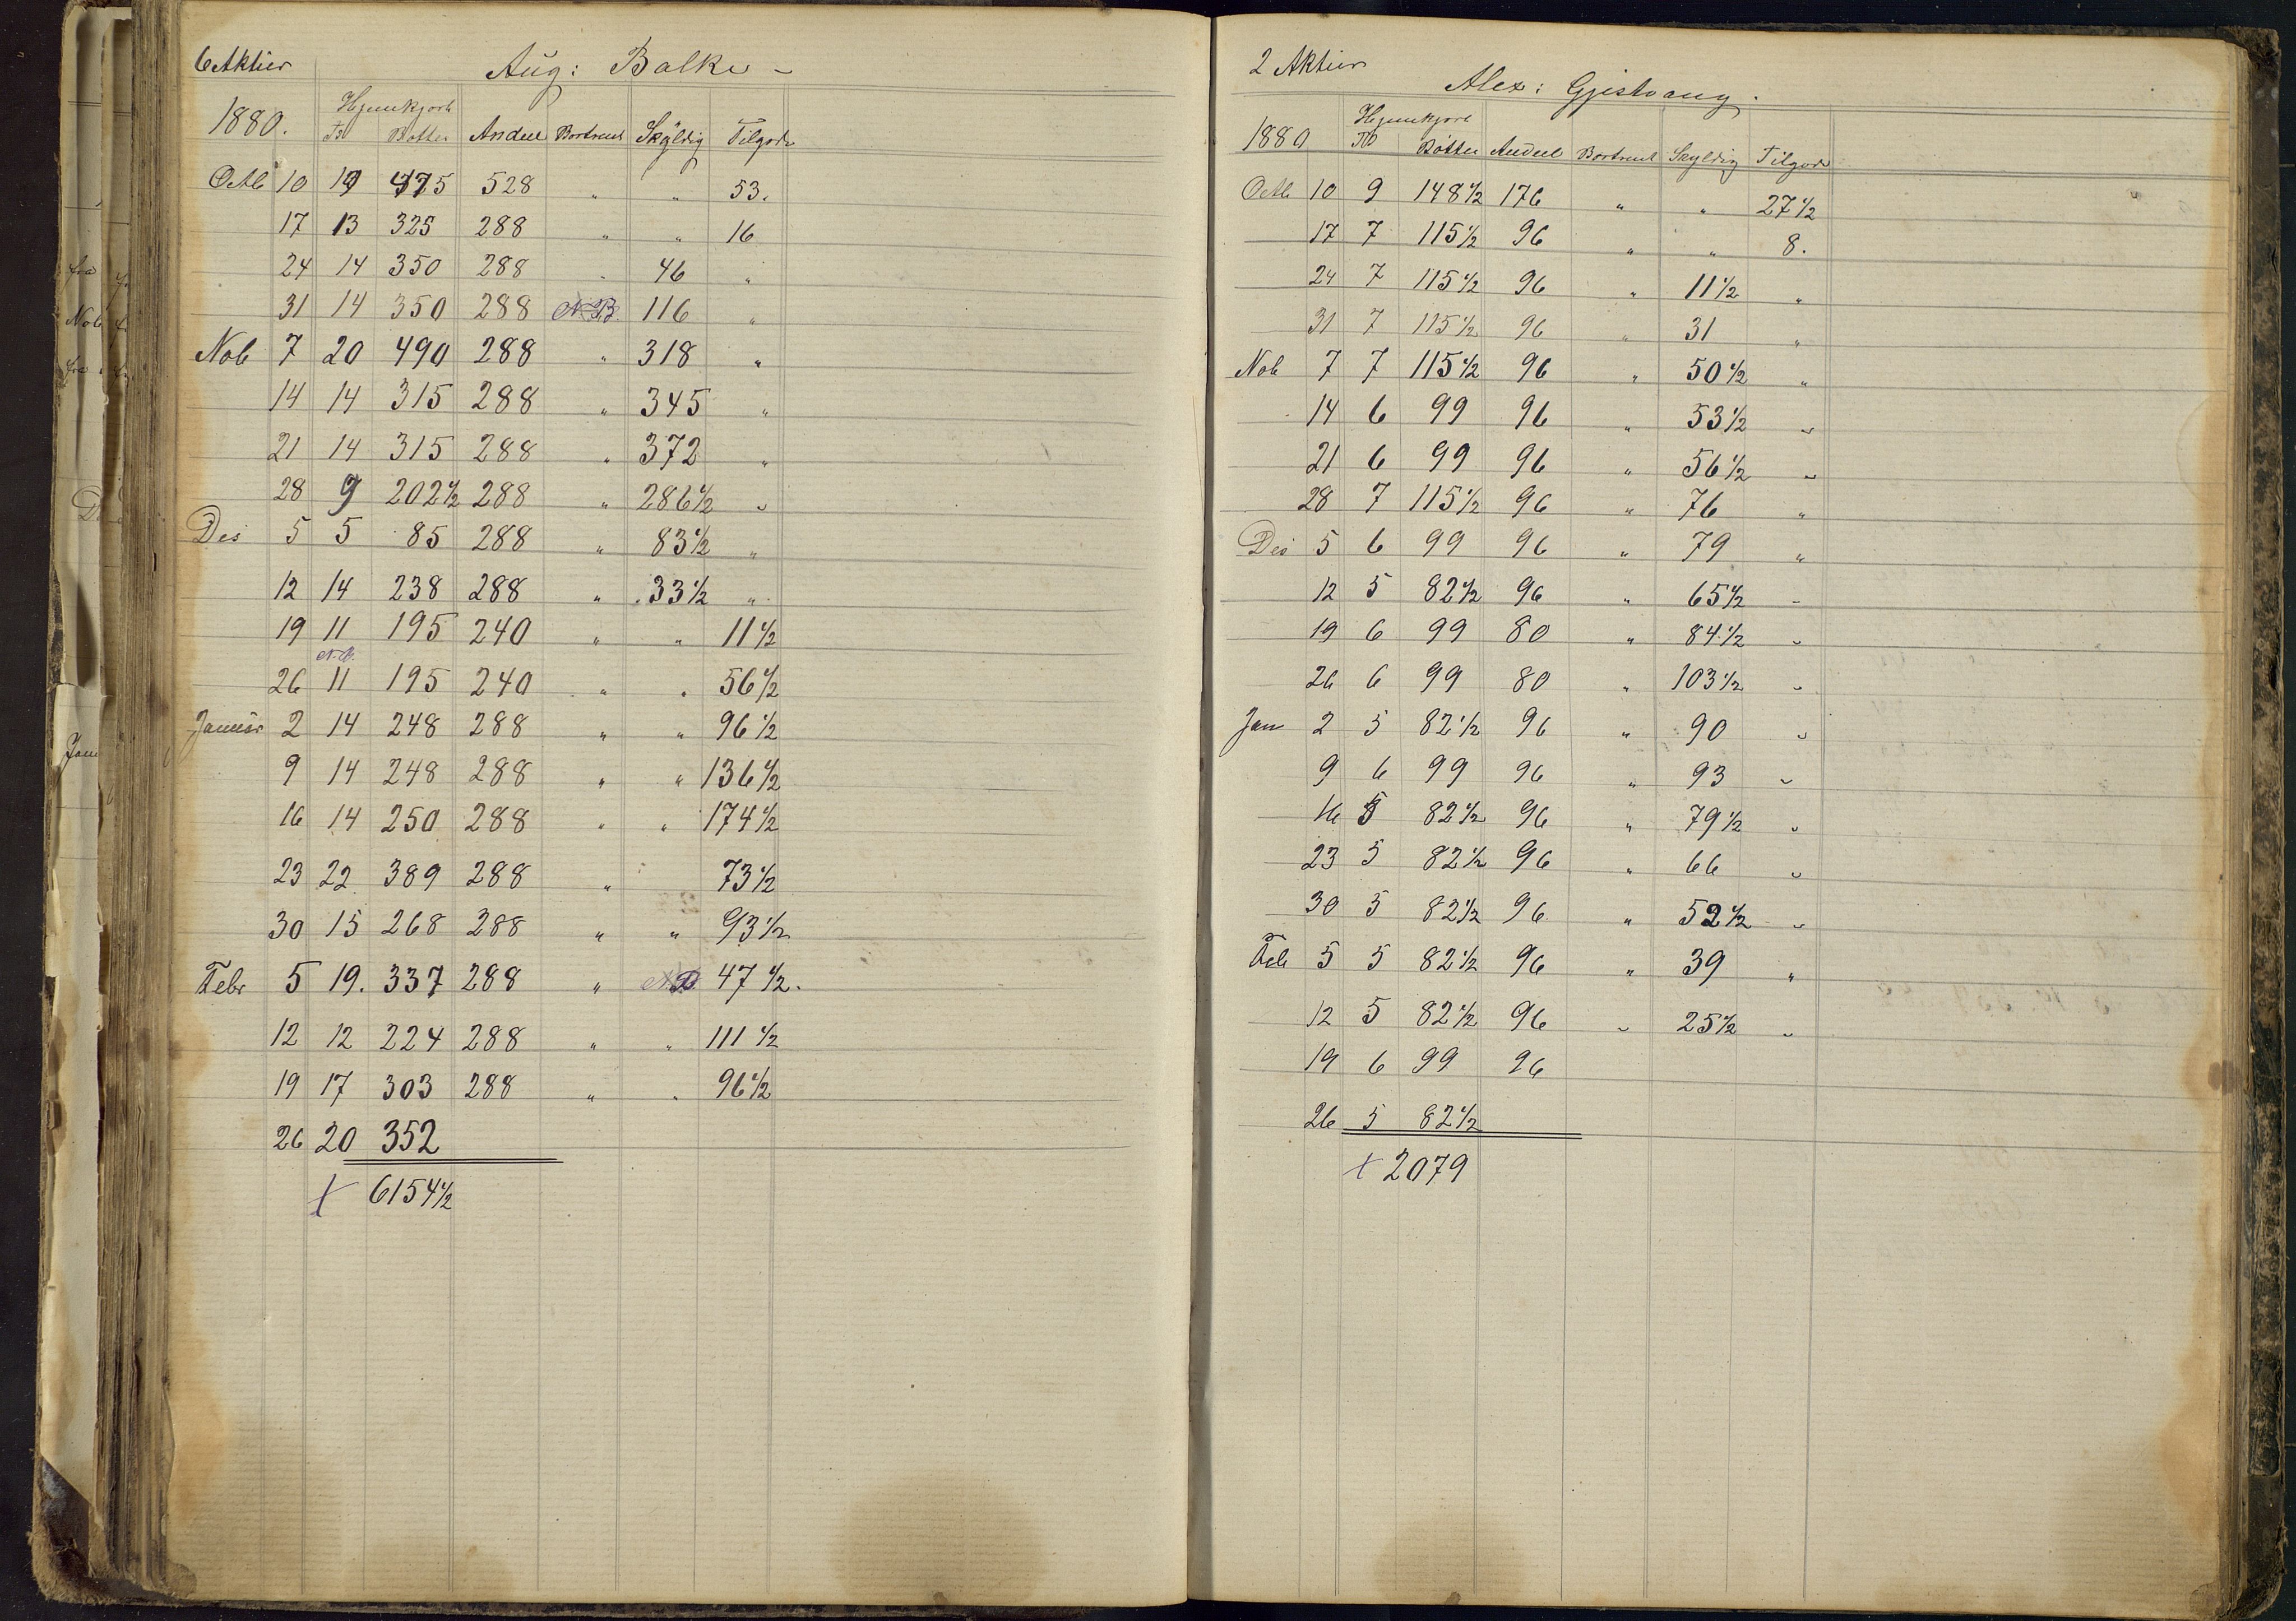 6 Aktier
Aug: Balke –
1880. Hjemkjort
Td Potter Andeel Bortsent Skyldig Tilgode
Octb 10 19 475 528 " " 53.
17 13 325 288 " " 16
24 14 350 288 " 46 "
31 14 350 288 NB. 116 "
Nob 7 20 490 288 " 318 "
14 14 315 288 " 345 "
21 14 315 288 " 372 "
28 9 202 1/2 288 " 286 1/2 "
Des 5 5 85 288 " 83 1/2 "
12 14 238 288 " 33 1/2 "
19 11 195 240 " " 11 1/2
26 11 195 240 " " 56 1/2
Januar 2 14 248 288 " " 96 1/2
9 14 248 288 " " 136 1/2
16 14 250 288 " " 174 1/2
23 22 389 288 " 73 1/2
30 15 268 288 " " 93 1/2
Febr 5 19. 337 288 " NB 47 1/2.
12 12 224 288 " " 111 1/2
19 17 303 288 " " 96 1/2
26 20 352
X 6154 1/2
2 Aktier
Alex: Gjestvang.
1880 Hjemkjort
Td Potter Andeel Bortsent Skyldig Tilgode
Octb 10 9 148 1/2 176 " " 27 1/2
17 7 115 1/2 96 " " 8.
24 7 115 1/2 96 " 11 1/2 "
31 7 115 1/2 96 " 31 "
Nob 7 7 115 1/2 96 " 50 1/2 "
14 6 99 96 " 53 1/2 "
21 6 99 96 " 56 1/2 "
28 7 115 1/2 96 " 76 "
Des 5 6 99 96 " 79 "
12 5 82 1/2 96 " 65 1/2 "
19 6 99 80 " 84 1/2 "
26 6 99 80 " 103 1/2 "
Jan 2 5 82 1/2 96 " 90 "
9 6 99 96 " 93 "
16 5 82 1/2 96 " 79 1/2 "
23 5 82 1/2 96 " 66 "
30 5 82 1/2 96 " 52 1/2 "
Feb 5 5 82 1/2 96 " 39 "
12 5 82 1/2 96 " 25 1/2 "
19 6 99 96
26 5 82 1/2
X 2079